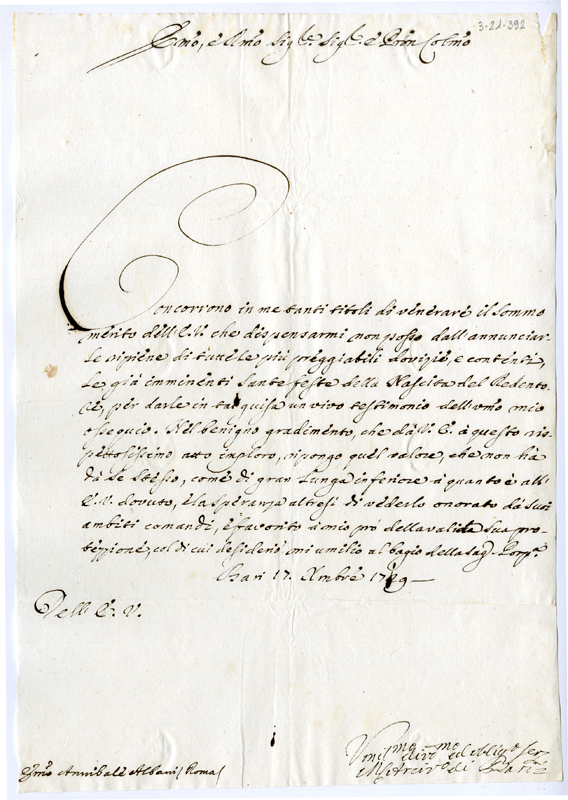 3-21-392
Emo, e Rmo Sigre. Sigre. e Pròn Colmo
Concorrono in me tanti titoli di venerare il sommo
merito dell'E.V. che dispensarmi non posso dall'annunciar-
Le ripiene di tutte le più preggiabili dovizie, e contenti,
Le già imminenti Sante feste della Nascita del Redento-
re, per darle in tal guisa un vivo testimonio dell'umo mio
ossequio. Nel benigno gradimento, che da V. E. à questo ris-
pettosissimo atto imploro, ripongo quel valore, che non hà
dà se stesso, come di gran lunga inferiore à quanto è all'
E.V. dovuto, e la speranza altresì di vederlo onorato dà suoi
ambiti comandi, e favorito à mio prò della valida sua pro-
tezzione, col di cui desiderio mi umilio al bagio della Sag. Porpa.
Bari 17. Xmbre 1729
Dell' E. V.
Emo Annibale Albani Roma
Umilmo divmo ed obligo Ser
L'Arcivo di Bari